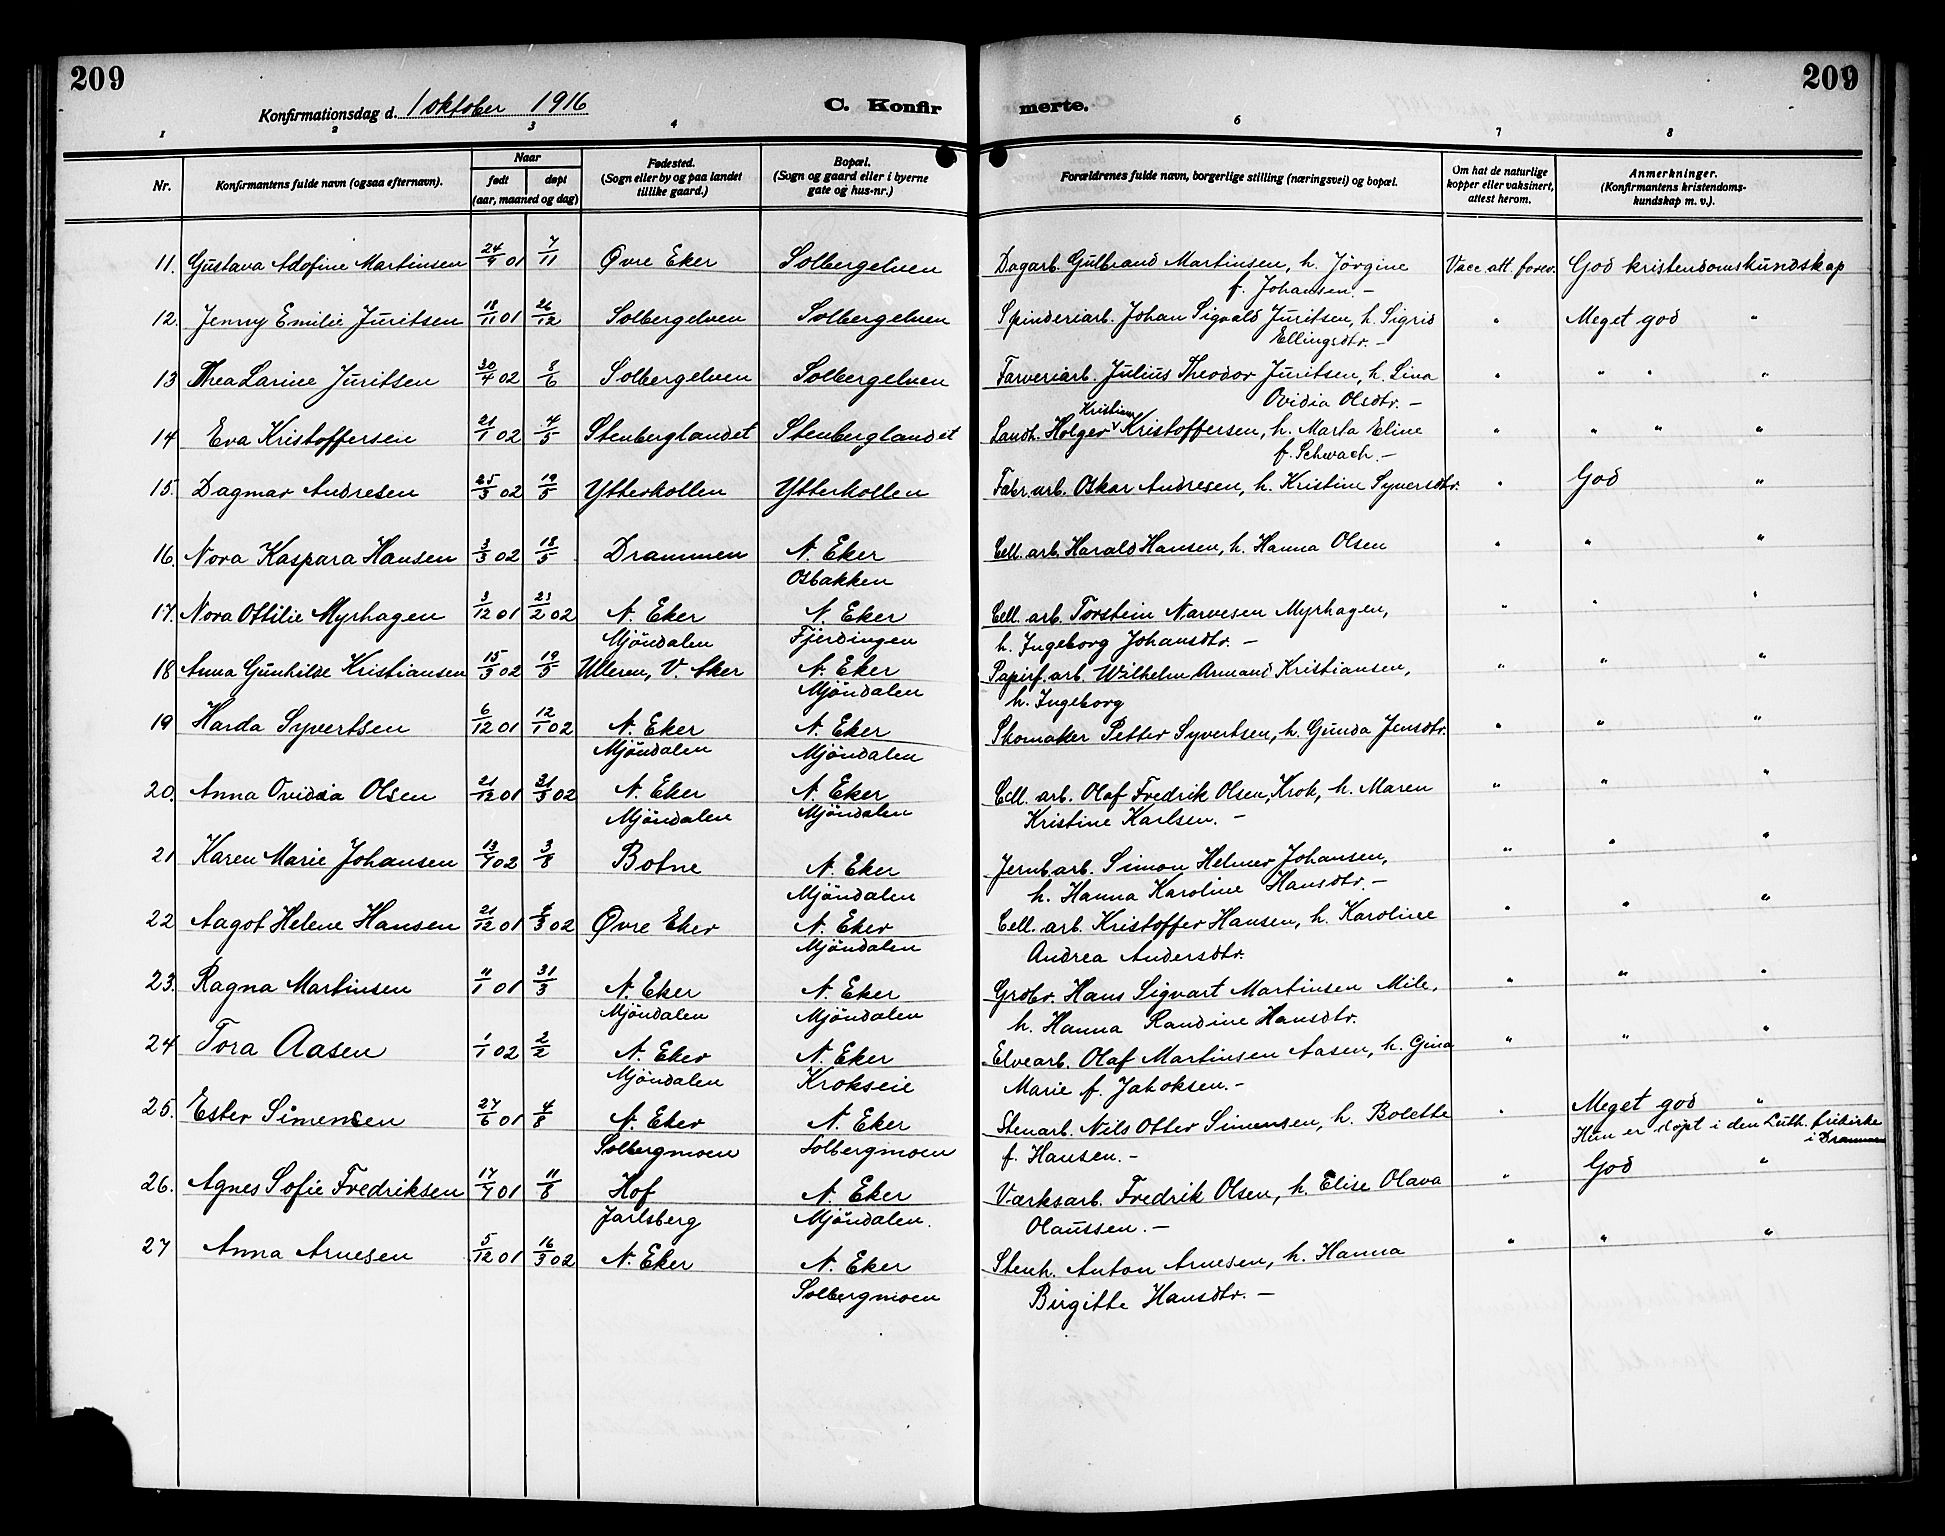 209
209
Konfirmationsdag d. 1 oktober 1916
C. Konfirmerte.
1 2 3 4 6 7 8
Nr. Konfirmantens fulde navn (ogsaa efternavn). Naar født døpt (aar, maaned og dag) Fødested. (Sogn eller by og paa landet tillike gaard.) Bopæl. (Sogn og gaard eller i byerne gate og hus-nr.) Forældrenes fulde navn, borgerlige stilling (næringsvei) og bopæl. Om hat de naturlige kopper eller vaksinert, attest herom. Anmerkninger. (Konfirmantens kristendomskundskap m. v.).
11. Gustava Adofine Martinsen 24/9 01 7/11 Øvre Eker Solbergelven Dagarb. Gulbrand Martinsen, h. Jörgine Vacc. att. forev. God kristendomskundskap
f. Johansen. -
12. Jenny Emilie Juritsen 18/11 01 26/12 Solbergelven Solbergelven Spinderiarb. Johan Sigvald Juritsen, h. Sigrid " Meget god "
Ellingsdtr. -
13 Thea Larine Juritsen 30/4 02 8/6 Solbergelven Solbergelven Farveriarb. Julius Theodor Juritsen, h. Lina " " " "
Ovidia Olsdtr. -
Kristian
14 Eva Kristoffersen 21/1 02 4/5 Stenberglandet Stenberglandet Landh. Holger Kristoffersen, h. Marta Eline " " " "
f. Schwach. -
15. Dagmar Andresen 25/3 02 19/5 Ytterkollen Ytterkollen Fabr. arb. Oskar Andresen, h. Kristine Syversdtr. " God "
16. Nora Kaspara Hansen 3/3 02 18/5 Drammen N. Eker Cell. arb. Harald Hansen, h. Hanna Olsen " " "
Osbakken
17. Nora Ottilie Myrhagen 3/12 01 23/2 02 N. Eker N. Eker Cell. arb. Torstein Narvesen Myrhagen, " " "
Mjöndalen Fjerdingen h. Ingeborg Johansdtr. -
18 Anna Gunhilde Kristiansen 15/3 02 19/5 Ulleren, V. Aker N. Eker Papirf. arb. Wilhelm Armand Kristiansen, " " "
Mjöndalen h. Ingeborg
19 Harda Syvertsen 6/12 01 12/1 02 N. Eker N. Eker Skomaker Petter Syvertsen, h. Gunda Jensdtr. " " "
Mjöndalen Mjöndalen
20. Anna Ovidia Olsen 21/12 01 31/3 02 N. Eker N. Eker Cell. arb. Olaf Fredrik Olsen, Krok, h. Maren " " "
Mjöndalen Mjöndalen Kristine Karlsen. -
21 Karen Marie Johansen 13/4 02 3/8 Botne N. Eker Jernb. arb. Simon Helmer Johansen, " " "
Mjöndalen h. Hanna Karoline Hansdtr. -
22 Aagot Helene Hansen 21/12 01 /3 02 Øvre Eker N. Eker Cell. arb. Kristoffer Hansen, h. Karoline " " "
Mjöndalen Andrea Andersdtr.
23. Ragna Martinsen 11/1 01 31/3 N. Eker N. Eker Grdbr. Hans Sigvart Martinsen Mile, " " "
Mjöndalen Mjöndalen h. Hanna Randine Hansdtr.
24 Tora Aasen 1/1 02 2/2 N. Eker N. Eker Elvearb. Olaf Martinsen Aasen, h. Gina " " "
Mjöndalen Krokseie Marie f. Jakoksen. -
25. Ester Simensen 27/6 01 4/8 N. Eker N. Eker Stenarb. Nils Otter Simensen, h. Bolette " Meget god "
Solbergmoen Solbergmoen f. Hansen. - Hun er döpt i den Luth. frikirke
i Drammen
26. Agnes Sofie Fredriksen 17/4 01 11/8 Hof N. Eker Værksarb. Fredrik Olsen, h. Elise Olava " God "
Jarlsberg Mjöndalen. Olaussen. -
27 Anna Arnesen 5/12 01 16/3 02 N. Eker N. Eker Stenh. Anton Arnesen, h. Hanna " " "
Solbergmoen Birgitte Hansdtr. -